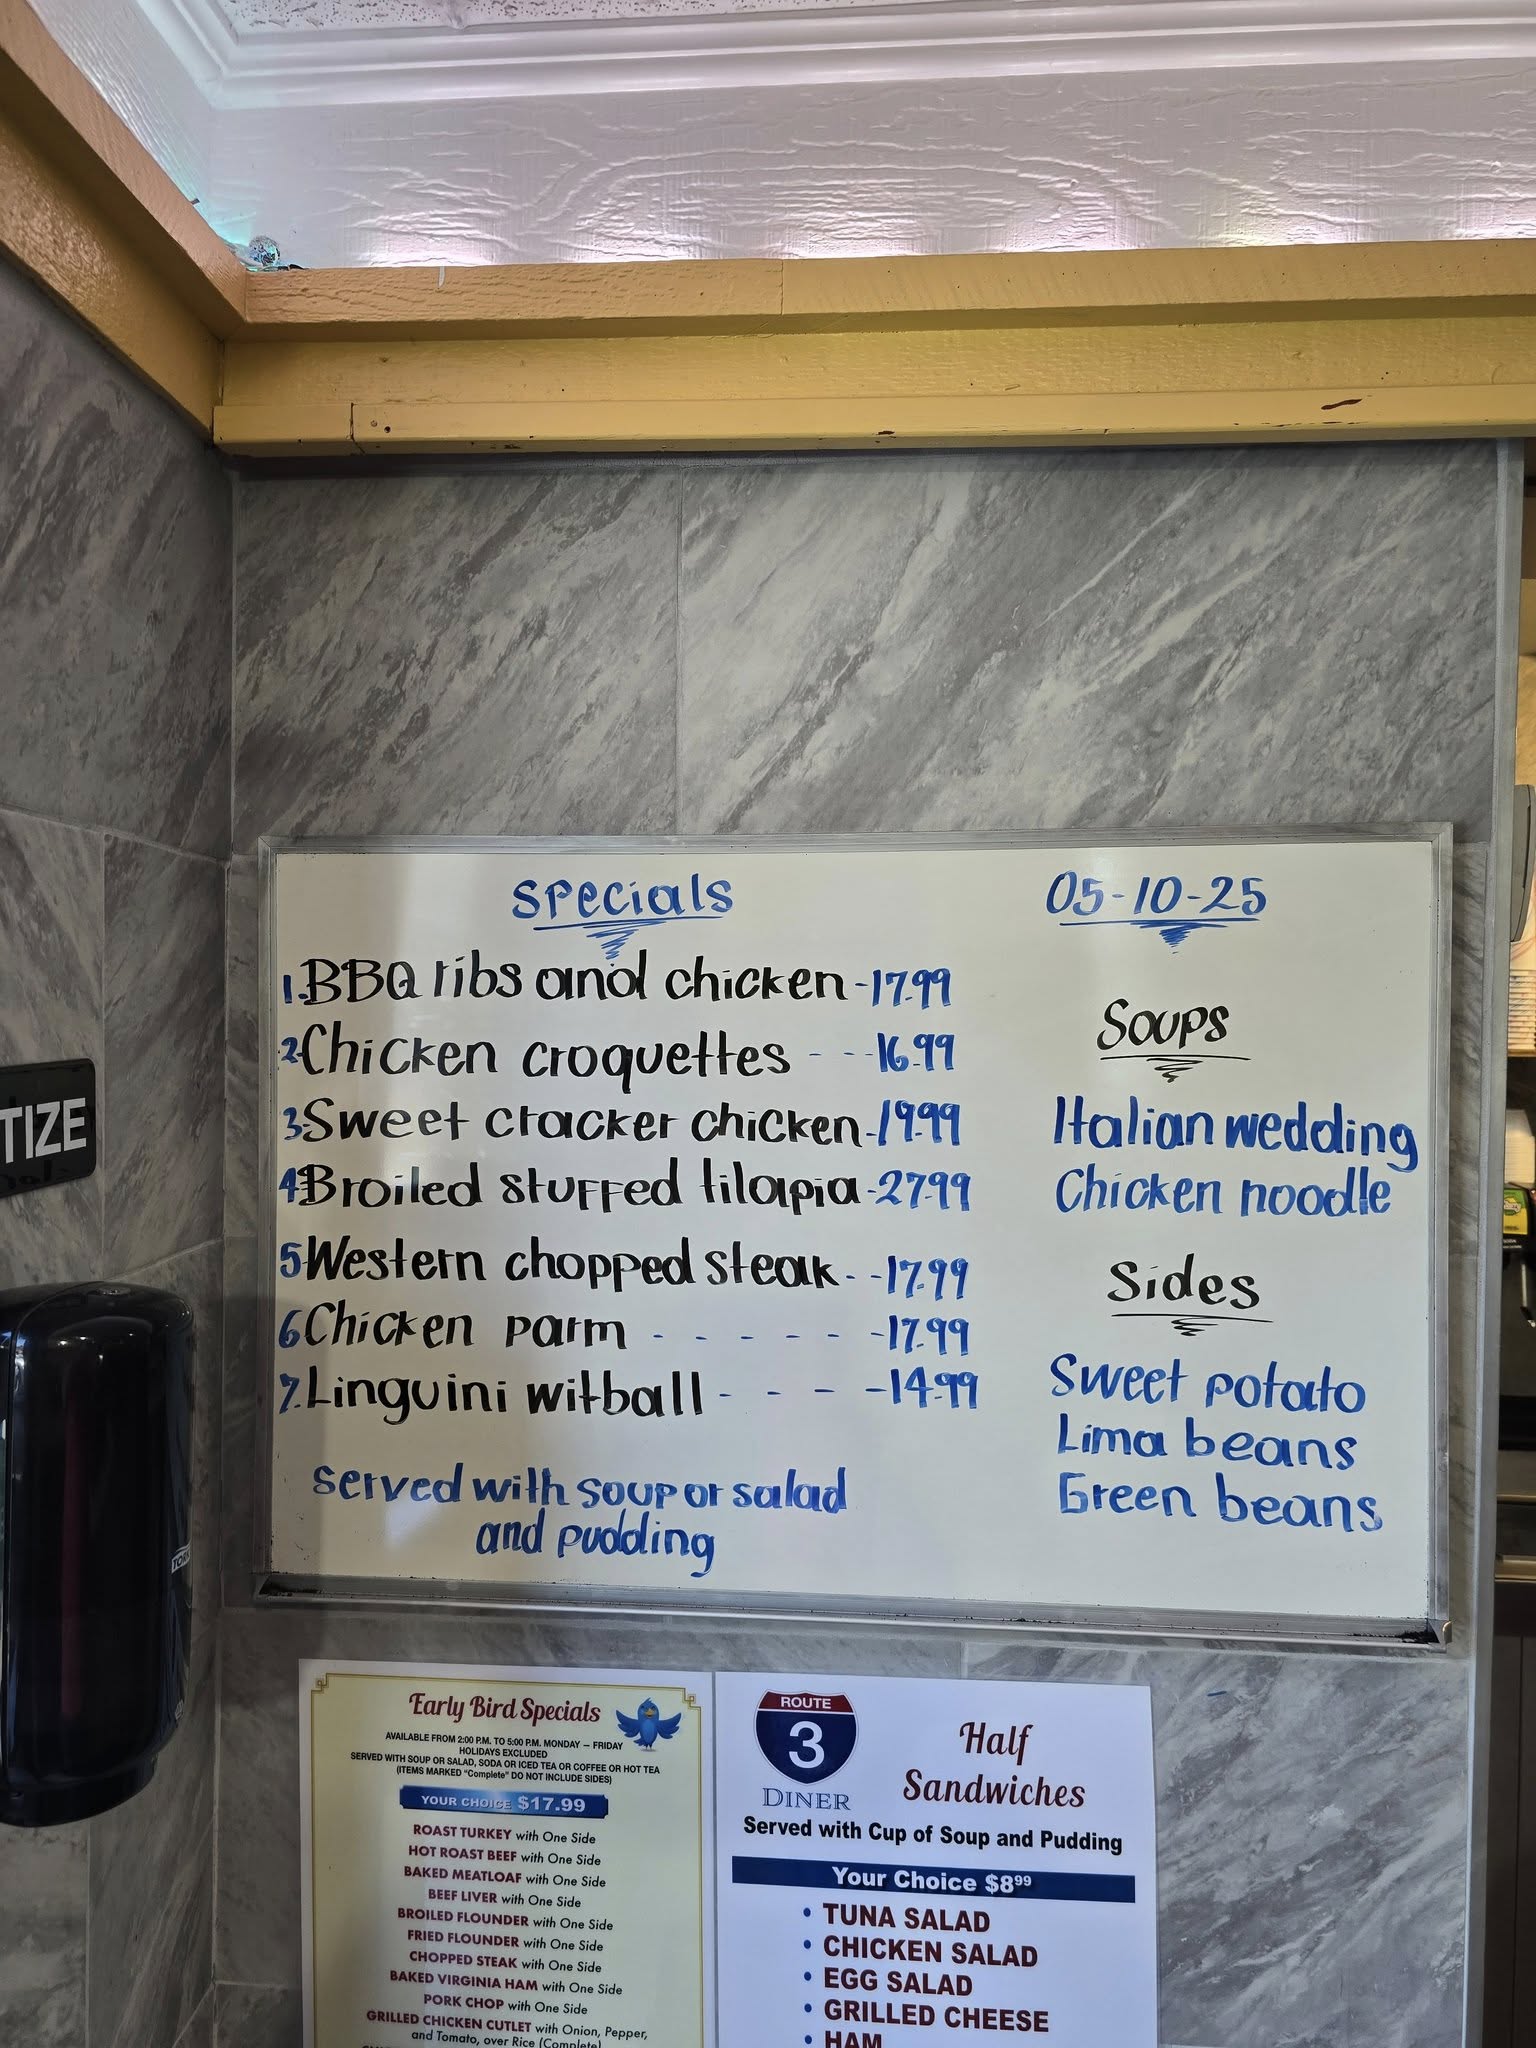 Specials
1. BBQ ribs and chicken - 17.99
2- Chicken croquettes - - - 16.99
3- Sweet cracker chicken - 19.99
4- Broiled stuffed tilapia - 27.99
5- Western chopped steak - - - 17.99
6 Chicken parm - - - - - - 17.99
7. Linguini witball - - - - 14.99
Served with soup or salad
and pudding
05-10-25
Soups
Italian wedding
Chicken noodle
Sides
Sweet potato
Lima beans
Green beans
TIZE
Early Bird Specials
AVAILABLE FROM 2:00 P.M. TO 5:00 P.M. MONDAY – FRIDAY
HOLIDAYS EXCLUDED
SERVED WITH SOUP OR SALAD, SODA OR ICED TEA OR COFFEE OR HOT TEA
(ITEMS MARKED "Complete" DO NOT INCLUDE SIDES)
YOUR CHOICE $17.99
ROAST TURKEY with One Side
HOT ROAST BEEF with One Side
BAKED MEATLOAF with One Side
BEEF LIVER with One Side
BROILED FLOUNDER with One Side
FRIED FLOUNDER with One Side
CHOPPED STEAK with One Side
BAKED VIRGINIA HAM with One Side
PORK CHOP with One Side
GRILLED CHICKEN CUTLET with Onion, Pepper,
and Tomato, over Rice (Complete)
ROUTE
3
DINER
Half
Sandwiches
Served with Cup of Soup and Pudding
Your Choice $8⁹⁹
• TUNA SALAD
• CHICKEN SALAD
• EGG SALAD
• GRILLED CHEESE
• HAM